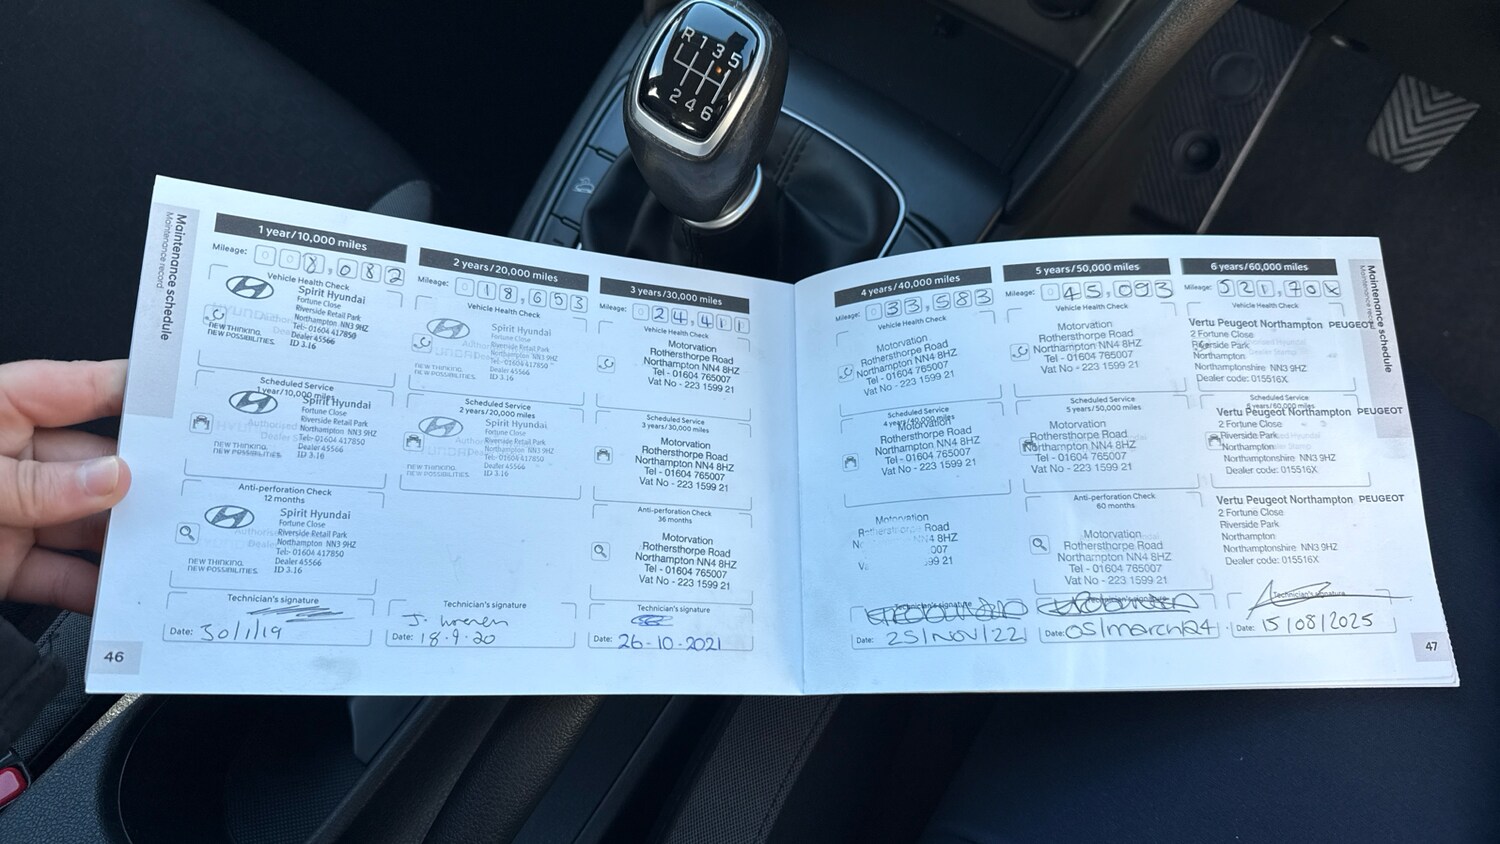 R 1 3 5
2 4 6
Maintenance schedule
Maintenance record
1 year/10,000 miles
Mileage: 008,082
Vehicle Health Check
Spirit Hyundai
Fortune Close
Riverside Retail Park
Northampton NN3 9HZ
Tel:- 01604 417850
Dealer 45566
ID 3.16
NEW THINKING.
NEW POSSIBILITIES.
Scheduled Service
1 year/10,000 miles
Spirit Hyundai
Fortune Close
Riverside Retail Park
Northampton NN3 9HZ
Tel:- 01604 417850
Dealer 45566
ID 3.16
NEW THINKING.
NEW POSSIBILITIES.
Anti-perforation Check
12 months
Spirit Hyundai
Fortune Close
Riverside Retail Park
Northampton NN3 9HZ
Tel:- 01604 417850
Dealer 45566
ID 3.16
NEW THINKING.
NEW POSSIBILITIES.
Technician's signature
Date: 30/1/19
46
2 years/20,000 miles
Mileage: 018,653
Vehicle Health Check
Spirit Hyundai
Fortune Close
Riverside Retail Park
Northampton NN3 9HZ
Tel:- 01604 417850
Dealer 45566
ID 3.16
NEW THINKING.
NEW POSSIBILITIES.
Scheduled Service
2 years/20,000 miles
Spirit Hyundai
Fortune Close
Riverside Retail Park
Northampton NN3 9HZ
Tel:- 01604 417850
Dealer 45566
ID 3.16
NEW THINKING.
NEW POSSIBILITIES.
Technician's signature
Date: 18.9.20
3 years/30,000 miles
Mileage: 024,411
Vehicle Health Check
Motorvation
Rothersthorpe Road
Northampton NN4 8HZ
Tel - 01604 765007
Vat No - 223 1599 21
Scheduled Service
3 years/30,000 miles
Motorvation
Rothersthorpe Road
Northampton NN4 8HZ
Tel - 01604 765007
Vat No - 223 1599 21
Anti-perforation Check
36 months
Motorvation
Rothersthorpe Road
Northampton NN4 8HZ
Tel - 01604 765007
Vat No - 223 1599 21
Technician's signature
Date: 26-10-2021
4 years/40,000 miles
Mileage: 033,583
Vehicle Health Check
Motorvation
Rothersthorpe Road
Northampton NN4 8HZ
Tel - 01604 765007
Vat No - 223 1599 21
Scheduled Service
4 years/40,000 miles
Motorvation
Rothersthorpe Road
Northampton NN4 8HZ
Tel - 01604 765007
Vat No - 223 1599 21
Motorvation
Road
4 8HZ
007
99 21
Technician's signature
Date: 25/Nov/22
5 years/50,000 miles
Mileage: 045,093
Vehicle Health Check
Motorvation
Rothersthorpe Road
Northampton NN4 8HZ
Tel - 01604 765007
Vat No - 223 1599 21
Scheduled Service
5 years/50,000 miles
Motorvation
Rothersthorpe Road
Northampton NN4 8HZ
Tel - 01604 765007
Vat No - 223 1599 21
Anti-perforation Check
60 months
Motorvation
Rothersthorpe Road
Northampton NN4 8HZ
Tel - 01604 765007
Vat No - 223 1599 21
Technician's signature
Date: 05/march/24
6 years/60,000 miles
Mileage:
Vehicle Health Check
Vertu Peugeot Northampton PEUGEOT
2 Fortune Close
Riverside Park
Northampton
Northamptonshire NN3 9HZ
Dealer code: 015516X
Scheduled Service
6 years/60,000 miles
Vertu Peugeot Northampton PEUGEOT
2 Fortune Close
Riverside Park
Northampton
Northamptonshire NN3 9HZ
Dealer code: 015516X
Vertu Peugeot Northampton PEUGEOT
2 Fortune Close
Riverside Park
Northampton
Northamptonshire NN3 9HZ
Dealer code: 015516X
Technician's signature
Date: 15/08/2025
Maintenance schedule
Maintenance record
47